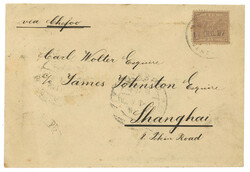 via Chefoo
Carl Wolter Esquire
c/o James Johnston Esquire
Shanghai
Road